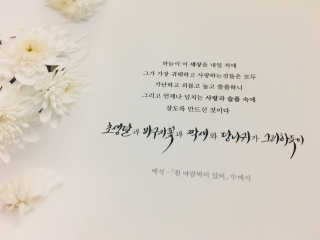 하늘이 이 세상을 내일 적에
그가 가장 귀해하고 사랑하는것들은 모두
가난하고 외롭고 높고 쓸쓸하니
그리고 언제나 넘치는 사랑과 슬픔 속에
살도록 만드신 것이다
초생달과 바구지꽃과 짝새와 당나귀가 그러하듯이
백석 - 「흰 바람벽이 있어」 中에서